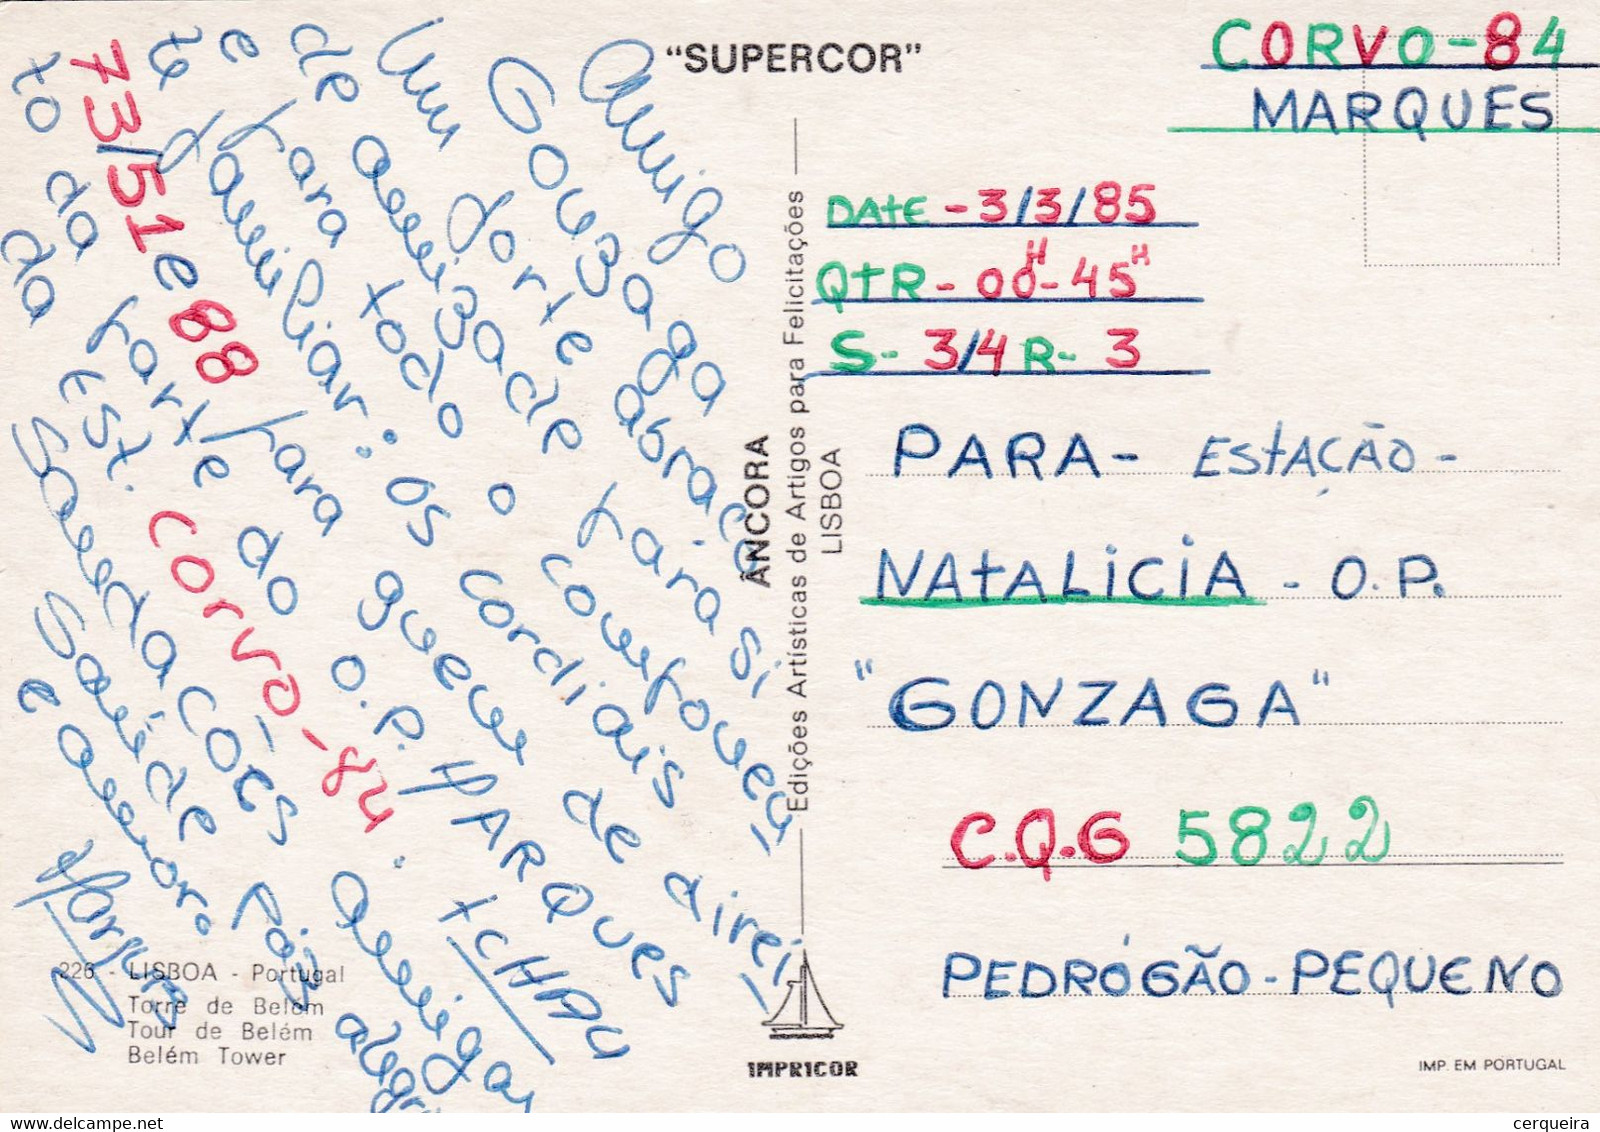 "SUPERCOR"
Amigo
Gonzaga
Um forte abraço
de amizade para si
e para todo o componen-
te familiar: os cordiais
73/51 e 88 para quem de direi-
to da parte do O.P. MARQUES
da Est. CORVO-84. TCHAU
Saudações amigas
Saúde Páz alegri
e amor.
Marques
CORVO-84
MARQUES
DATE - 3/3/85
QTR - 00H - 45H
S- 3/4 R- 3
PARA - ESTAÇÃO -
NATALICIA - O.P.
"GONZAGA"
C.Q.G 5822
PEDRÓGÃO-PEQUENO
ÂNCORA
Edições Artísticas de Artigos para Felicitações
LISBOA
226 - LISBOA - Portugal
Torre de Belém
Tour de Belém
Belém Tower
IMPRICOR
IMP. EM PORTUGAL
cerqueira
delcampe.net